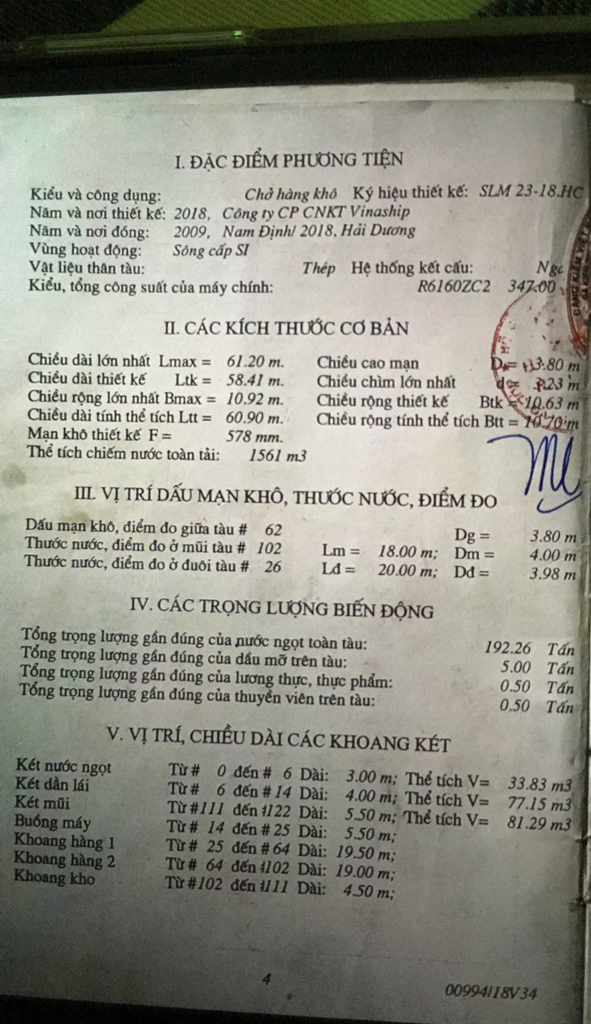 I. ĐẶC ĐIỂM PHƯƠNG TIỆN
Kiểu và công dụng: Chở hàng khô Ký hiệu thiết kế: SLM 23-18.HC
Năm và nơi thiết kế: 2018, Công ty CP CNKT Vinaship
Năm và nơi đóng: 2009, Nam Định/ 2018, Hải Dương
Vùng hoạt động: Sông cấp SI
Vật liệu thân tàu: Thép Hệ thống kết cấu:
Kiểu, tổng công suất của máy chính: R6160ZC2 347.00
II. CÁC KÍCH THƯỚC CƠ BẢN
Chiều dài lớn nhất Lmax = 61.20 m. Chiều cao mạn D = 3.80 m
Chiều dài thiết kế Ltk = 58.41 m. Chiều chìm lớn nhất d = 3.23 m
Chiều rộng lớn nhất Bmax = 10.92 m. Chiều rộng thiết kế Btk = 10.63 m
Chiều dài tính thể tích Ltt = 60.90 m. Chiều rộng tính thể tích Btt = 10.70 m
Mạn khô thiết kế F = 578 mm.
Thể tích chiếm nước toàn tải: 1561 m3
III. VỊ TRÍ DẤU MẠN KHÔ, THƯỚC NƯỚC, ĐIỂM ĐO
Dấu mạn khô, điểm đo giữa tàu # 62 Dg = 3.80 m
Thước nước, điểm đo ở mũi tàu # 102 Lm = 18.00 m; Dm = 4.00 m
Thước nước, điểm đo ở đuôi tàu # 26 Lđ = 20.00 m; Dđ = 3.98 m
IV. CÁC TRỌNG LƯỢNG BIẾN ĐỘNG
Tổng trọng lượng gần đúng của nước ngọt toàn tàu: 192.26 Tấn
Tổng trọng lượng gần đúng của dầu mỡ trên tàu: 5.00 Tấn
Tổng trọng lượng gần đúng của lương thực, thực phẩm: 0.50 Tấn
Tổng trọng lượng gần đúng của thuyền viên trên tàu: 0.50 Tấn
V. VỊ TRÍ, CHIỀU DÀI CÁC KHOANG KÉT
Két nước ngọt Từ # 0 đến # 6 Dài: 3.00 m; Thể tích V= 33.83 m3
Két dằn lái Từ # 6 đến # 14 Dài: 4.00 m; Thể tích V= 77.15 m3
Két mũi Từ #111 đến #122 Dài: 5.50 m; Thể tích V= 81.29 m3
Buồng máy Từ # 14 đến # 25 Dài: 5.50 m;
Khoang hàng 1 Từ # 25 đến # 64 Dài: 19.50 m;
Khoang hàng 2 Từ # 64 đến #102 Dài: 19.00 m;
Khoang kho Từ #102 đến #111 Dài: 4.50 m;
4
00994/18V34